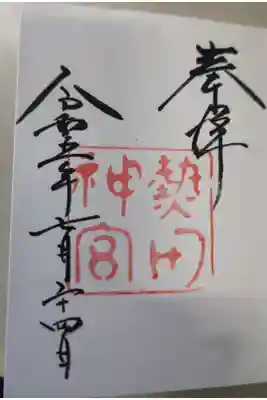 奉拝
熱田
神宮
令和五年七月二十四日